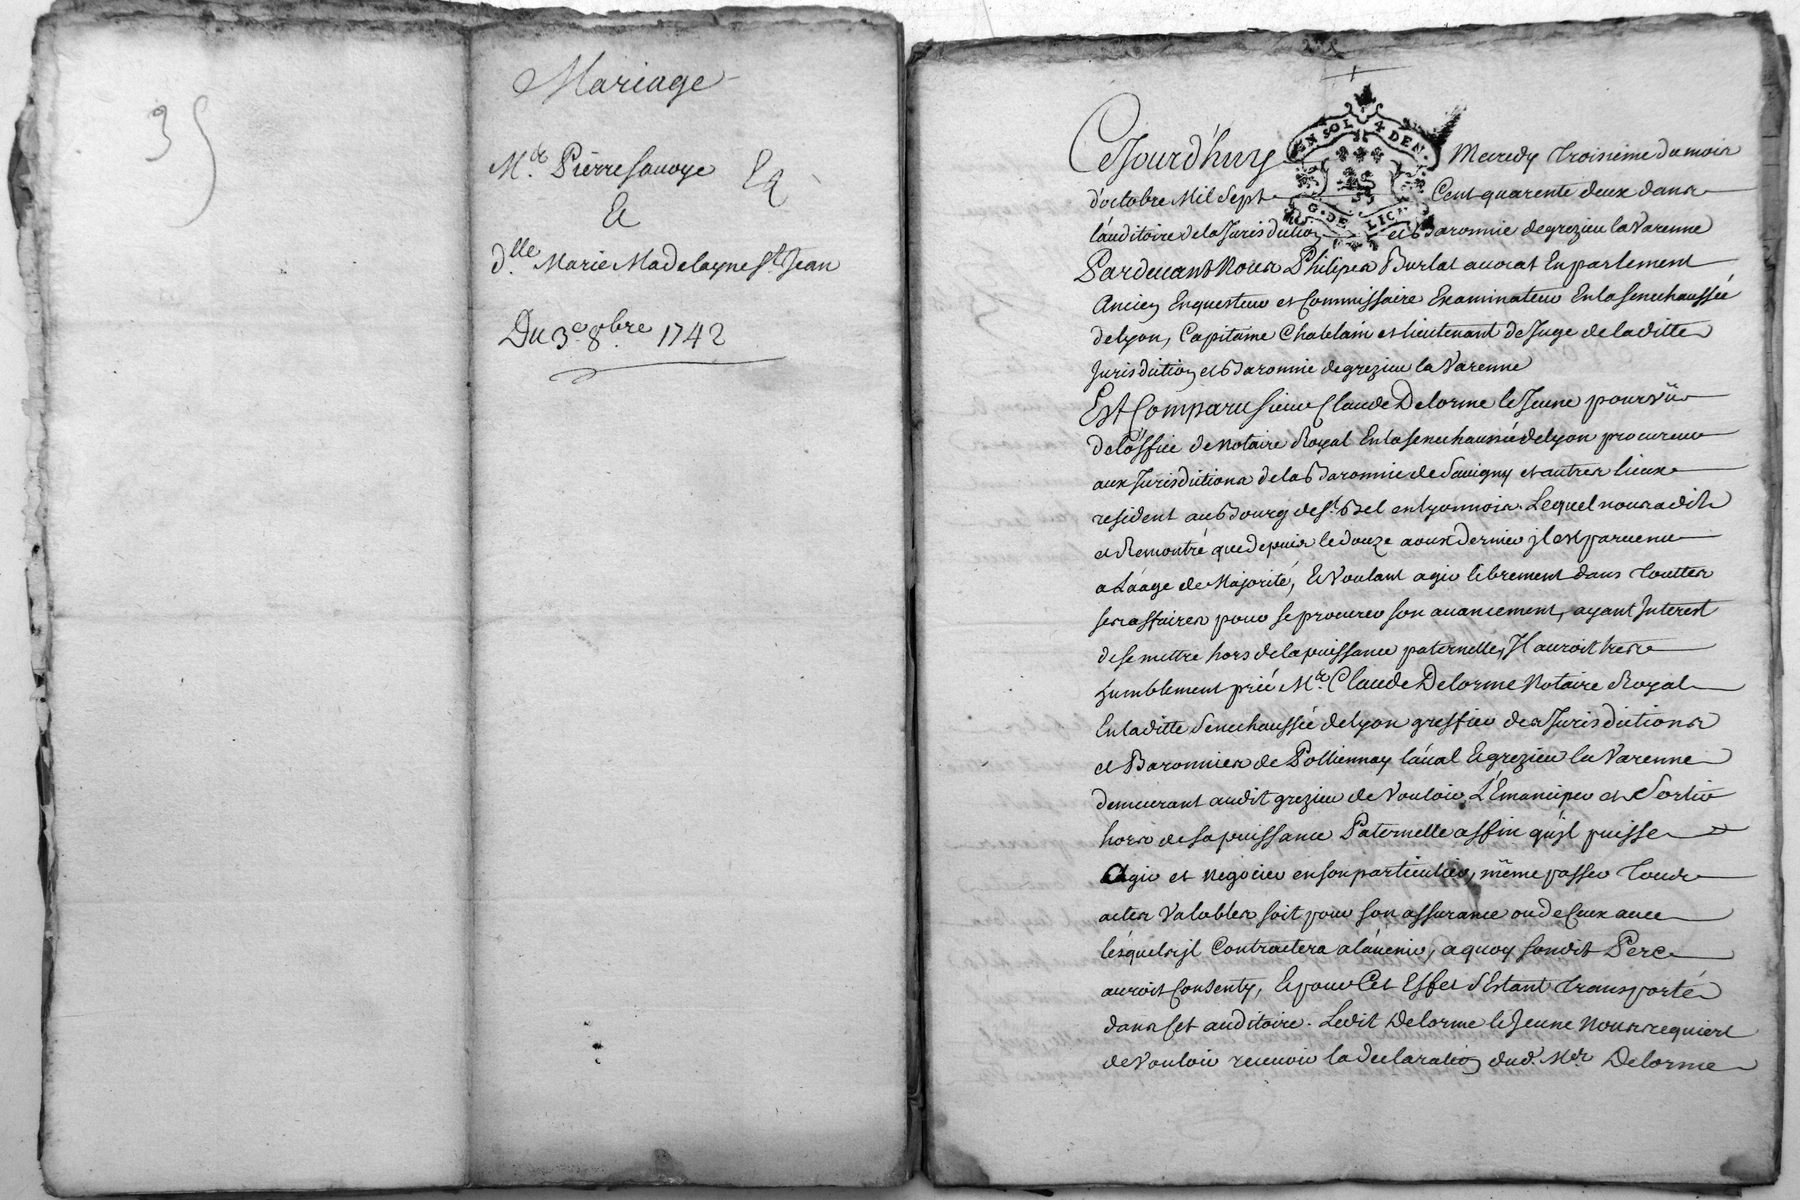 35
Mariage
Mre Pierre Sauoye
Et
dlle Marie Madelayne St Jean
Du 3e 8bre 1742
EN SOL 4 DEN.
G. DE LION
Cejourd'huy Mercredy troisieme du mois
d'octobre Mil Sept Cent quarente deux dans
l'auditoire de la Jurisdiction et Baronnie de grezieu la Varenne
Pardeuant Nous Philipes Burlat auocat En parlement
Ancien Enquesteur et Commissaire Examinateur En la Senechaussée
de lyon, Capitaine Chatelain et lieutenant de Juge de laditte
Jurisdiction et Baronnie de grezieu la Varenne
Est Comparu Sieur Claude Delorme le Jeune pourvü
de l'office de Notaire Royal En la Senechaussée de lyon procureur
aux Jurisdictions de la Baronnie de Sauigny et autres lieux
resident au Bourg de St Bel en lyonnois. Lequel nous a dit
et Remontré que depuis le douze aoust dernier jl est paruenu
a Láage de Majorité, Et Voulant agir librement dans touttes
ses affaires pour se procurer son auancement, ayant Interest
de se mettre hors de la puissance paternelle, Il auroit tres
humblement prié Mre Claude Delorme Notaire Royal
En laditte Senechaussée de lyon greffier des Jurisdictions
et Baronnies de Pollionnay láual Et grezieu la Varenne
demeurant audit grezieu de Vouloir L'Émanciper et Sortir
hors de sa puissance Paternelle affin qu'jl puisse
Agir et negocier en son particulier, même passer tous
actes Valables soit pour son assurance ou de Ceux auec
lésquels jl Contractera a láuenir, a quoy sondit Pere
auroit Consenty, Et pour Cet Effet s'Estant transporté
dans Cet auditoire. Ledit Delorme le Jeune Nous requiert
de Vouloir receuoir la declaration dud. Mre Delorme